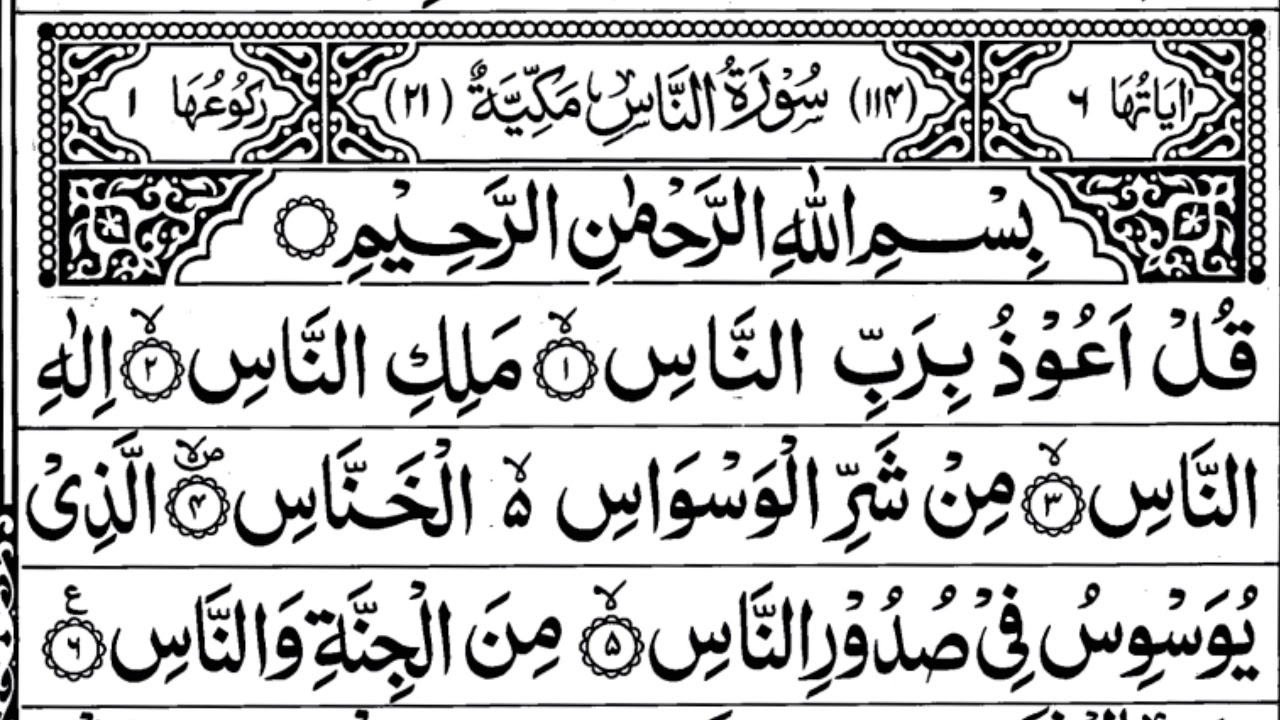 اٰيَاتُهَا ٦ (۱۱۴) سُوْرَةُ النَّاسِ مَكِّيَّةٌ (۲۱) رُكُوْعُهَا ۱
بِسْمِ اللّٰهِ الرَّحْمٰنِ الرَّحِيْمِ
قُلْ اَعُوْذُ بِرَبِّ النَّاسِ ۙ﴿۱﴾ مَلِكِ النَّاسِ ۙ﴿۲﴾ اِلٰهِ
النَّاسِ ۙ﴿۳﴾ مِنْ شَرِّ الْوَسْوَاسِ ۙ۵ الْخَنَّاسِ ۪ۙ﴿۴﴾ الَّذِىْ
يُوَسْوِسُ فِىْ صُدُوْرِ النَّاسِ ۙ﴿۵﴾ مِنَ الْجِنَّةِ وَالنَّاسِ ﴿۶﴾ ع